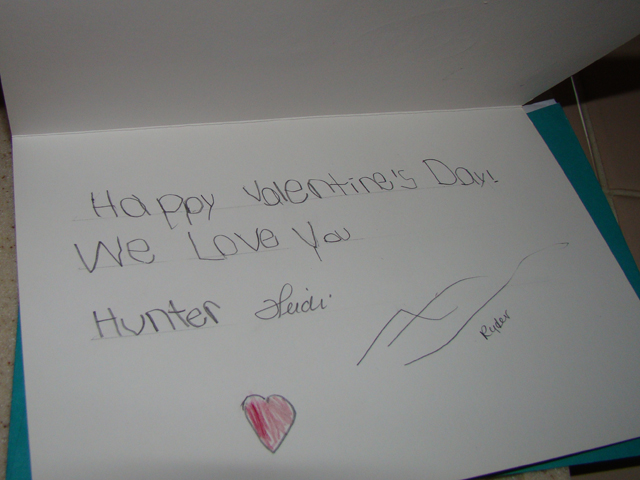 Happy Valentine's Day!
We Love You
Hunter Heidi
Ryder